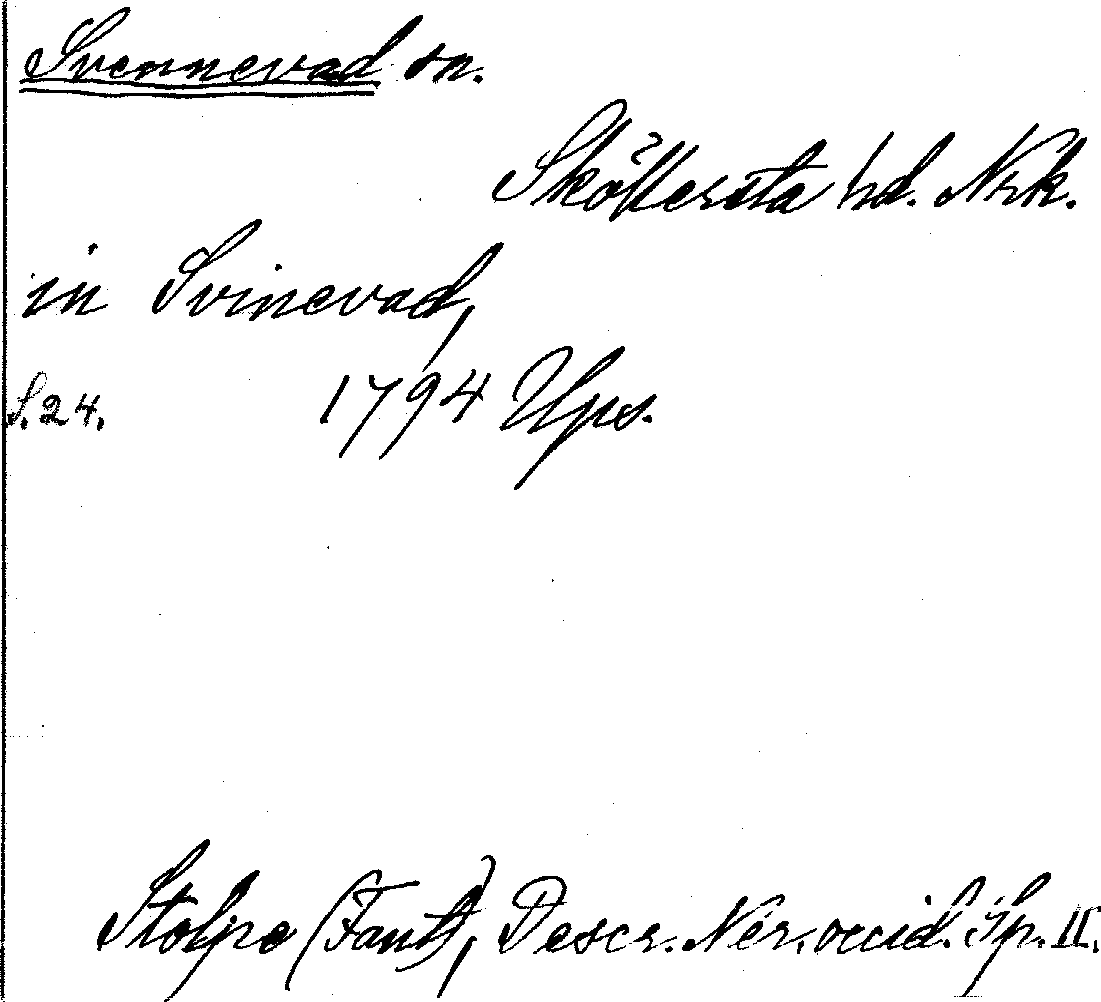 Svennevad sn.
Sköllersta hd. Nrk.
in Svinevad,
S. 24. 1794 Ups.
Stolpe (Fant), Descr. Ner. occid. Sp. II.